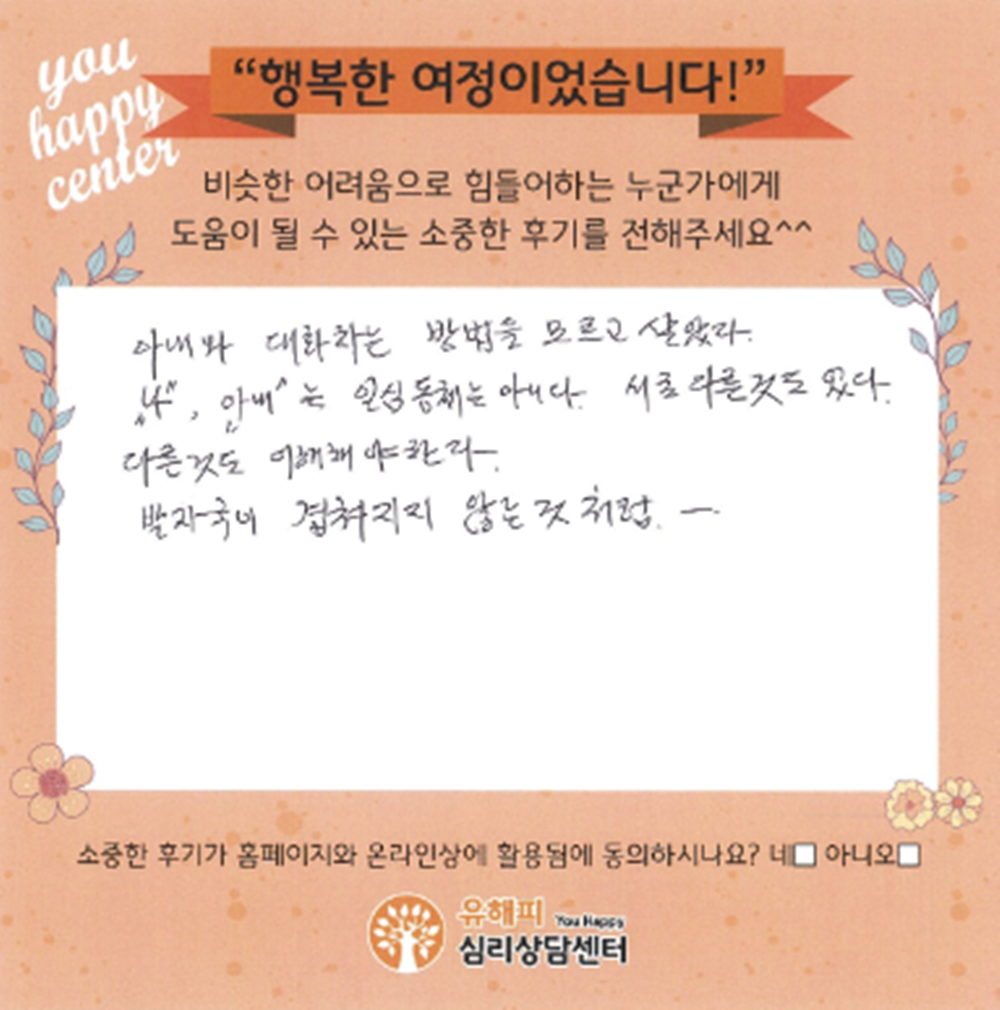 you
happy
center
“행복한 여정이었습니다!”
비슷한 어려움으로 힘들어하는 누군가에게
도움이 될 수 있는 소중한 후기를 전해주세요^^
아내와 대화하는 방법을 모르고 살았다.
"나", "아내"는 일심동체는 아니다. 서로 다른것도 있다.
다른것도 이해해야한다.
발자국이 겹쳐지지 않는 것 처럼. ㅡ
소중한 후기가 홈페이지와 온라인상에 활용됨에 동의하시나요? 네□ 아니오□
유해피 You Happy
심리상담센터